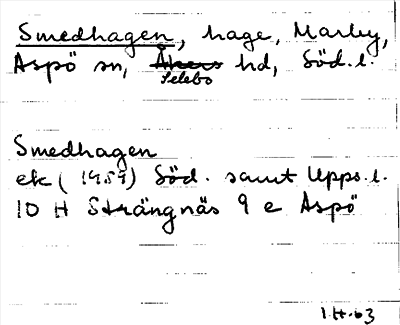 Smedhagen, hage, Marby,
Aspö sn, Åkers hd, Söd.l.
Selebo
Smedhagen
ek (1959) Söd. samt Upps.l.
10 H Strängnäs 9 e Aspö
1.H.63